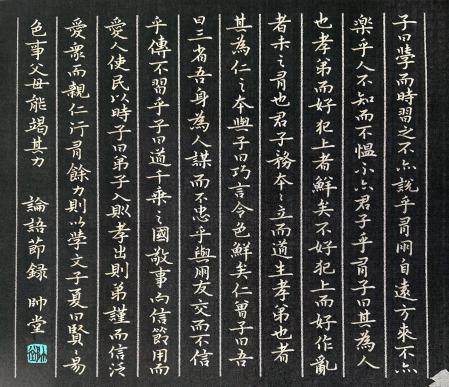 子曰學而時習之不亦說乎有朋自遠方來不亦
樂乎人不知而不慍不亦君子乎有子曰其為人
也孝弟而好犯上者鮮矣不好犯上而好作亂
者未之有也君子務本〻立而道生孝弟也者
其為仁之本與子曰巧言令色鮮矣仁曾子曰吾
日三省吾身為人謀而不忠乎與朋友交而不信
乎傳不習乎子曰道千乘之國敬事而信節用而
愛人使民以時子曰弟子入則孝出則弟謹而信泛
愛眾而親仁行有餘力則以學文子夏曰賢〻易
色事父母能竭其力 論語節錄 帥堂